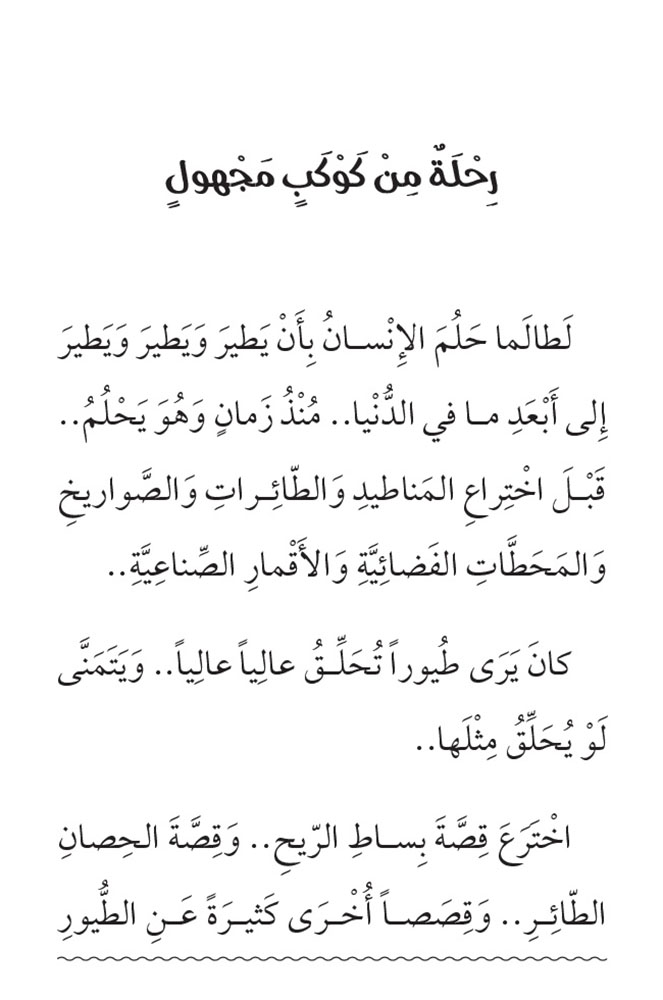 رِحْلَةٌ مِنْ كَوْكَبٍ مَجْهولٍ
لَطالَما حَلُمَ الإِنْسـانُ بِأَنْ يَطيرَ وَيَطيرَ وَيَطيرَ
إِلى أَبْعَدِ مـا في الدُّنْيا.. مُنْذُ زَمانٍ وَهُوَ يَحْلُمُ..
قَبْـلَ اخْتِراعِ المَناطيدِ وَالطّائِـراتِ وَالصَّواريخِ
وَالمَحَطَّاتِ الفَضائِيَّةِ وَالأَقْمارِ الصِّناعِيَّةِ..
كانَ يَرَى طُيوراً تُحَلِّـقُ عالِياً عالِياً.. وَيَتَمَنَّى
لَوْ يُحَلِّقُ مِثْلَها..
اخْتَرَعَ قِصَّةَ بِسـاطِ الرّيحِ.. وَقِصَّةَ الحِصانِ
الطّائِـرِ.. وَقِصَصـاً أُخْـرَى كَثيـرَةً عَـنِ الطُّيورِ